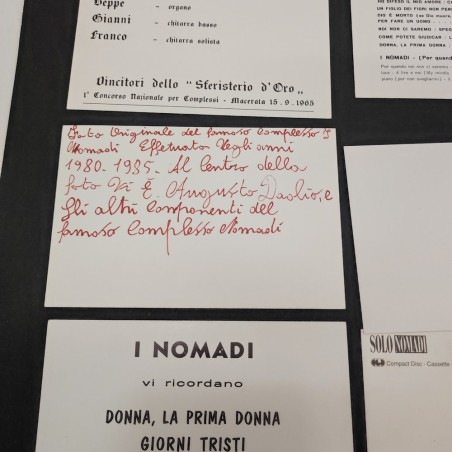 Beppe - organo
Gianni - chitarra basso
Franco - chitarra solista
Vincitori dello "Sferisterio d'Oro"
1° Concorso Nazionale per Complessi - Macerata 15.9.1965
HO DIFESO IL MIO AMORE
UN FIGLIO DEI FIORI NON
DIO È MORTO
PER FARE UN UOMO
NOI NON CI SAREMO
COME POTETE GIUDICAR
DONNA, LA PRIMA DONNA
I NOMADI
Foto Originale del famoso complesso I
Nomadi Effettuato Negli anni
1980-1985. Al Centro della
foto Vi È Augusto Daolio, e
Gli altri Componenti del
famoso Complesso Nomadi
I NOMADI
vi ricordano
DONNA, LA PRIMA DONNA
GIORNI TRISTI
SOLO NOMADI
Compact Disc - Cassette